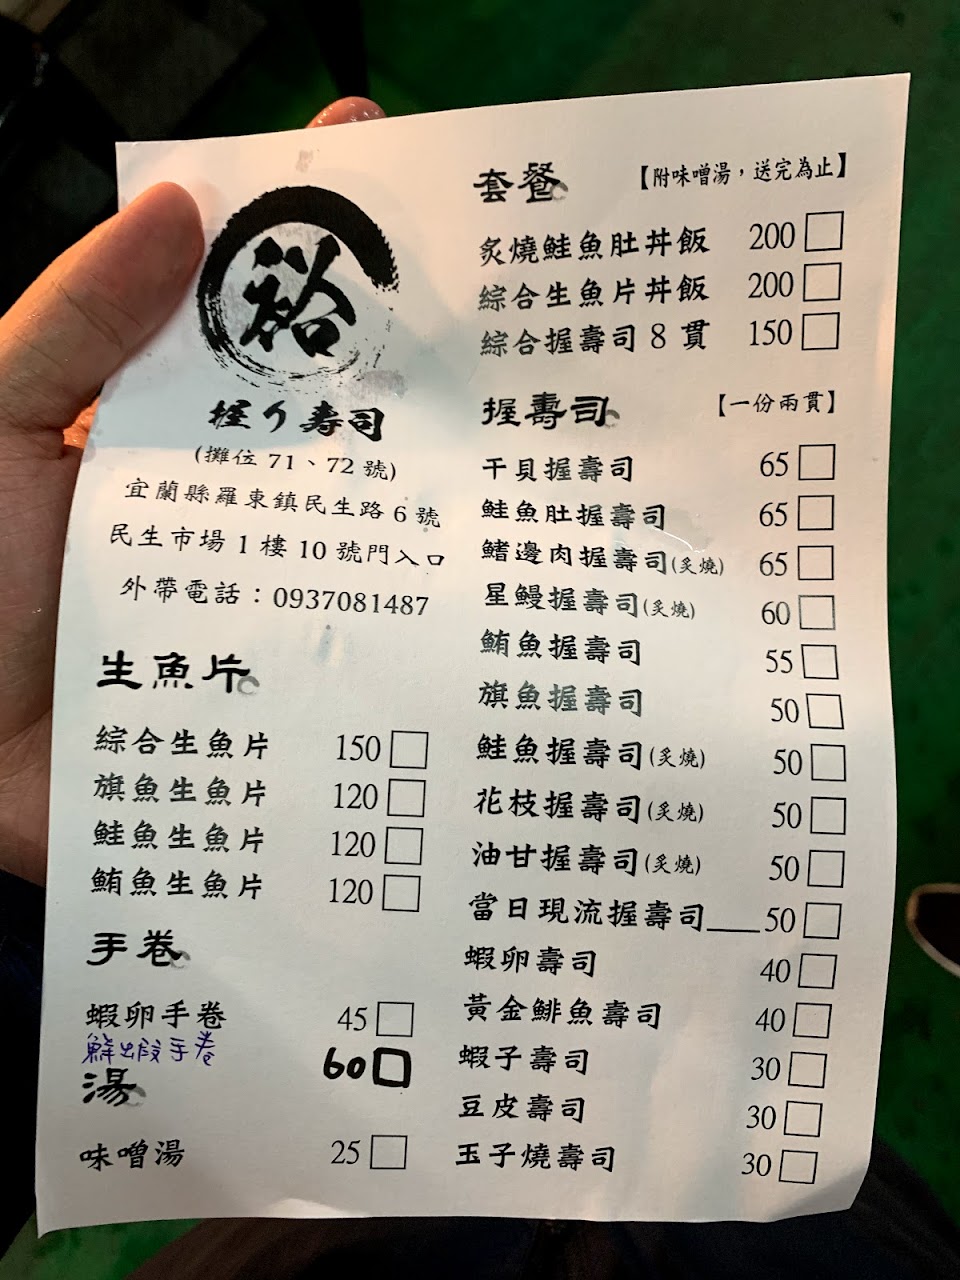 裕
握り壽司
(攤位 71、72 號)
宜蘭縣羅東鎮民生路 6 號
民生市場 1 樓 10 號門入口
外帶電話：0937081487
生魚片
綜合生魚片 150
旗魚生魚片 120
鮭魚生魚片 120
鮪魚生魚片 120
手卷
蝦卵手卷 45
鮮蝦手卷 60
湯
味噌湯 25
套餐 【附味噌湯，送完為止】
炙燒鮭魚肚丼飯 200
綜合生魚片丼飯 200
綜合握壽司 8 貫 150
握壽司 【一份兩貫】
干貝握壽司 65
鮭魚肚握壽司 65
鰭邊肉握壽司(炙燒) 65
星鰻握壽司(炙燒) 60
鮪魚握壽司 55
旗魚握壽司 50
鮭魚握壽司(炙燒) 50
花枝握壽司(炙燒) 50
油甘握壽司(炙燒) 50
當日現流握壽司___50
蝦卵壽司 40
黃金鯡魚壽司 40
蝦子壽司 30
豆皮壽司 30
玉子燒壽司 30